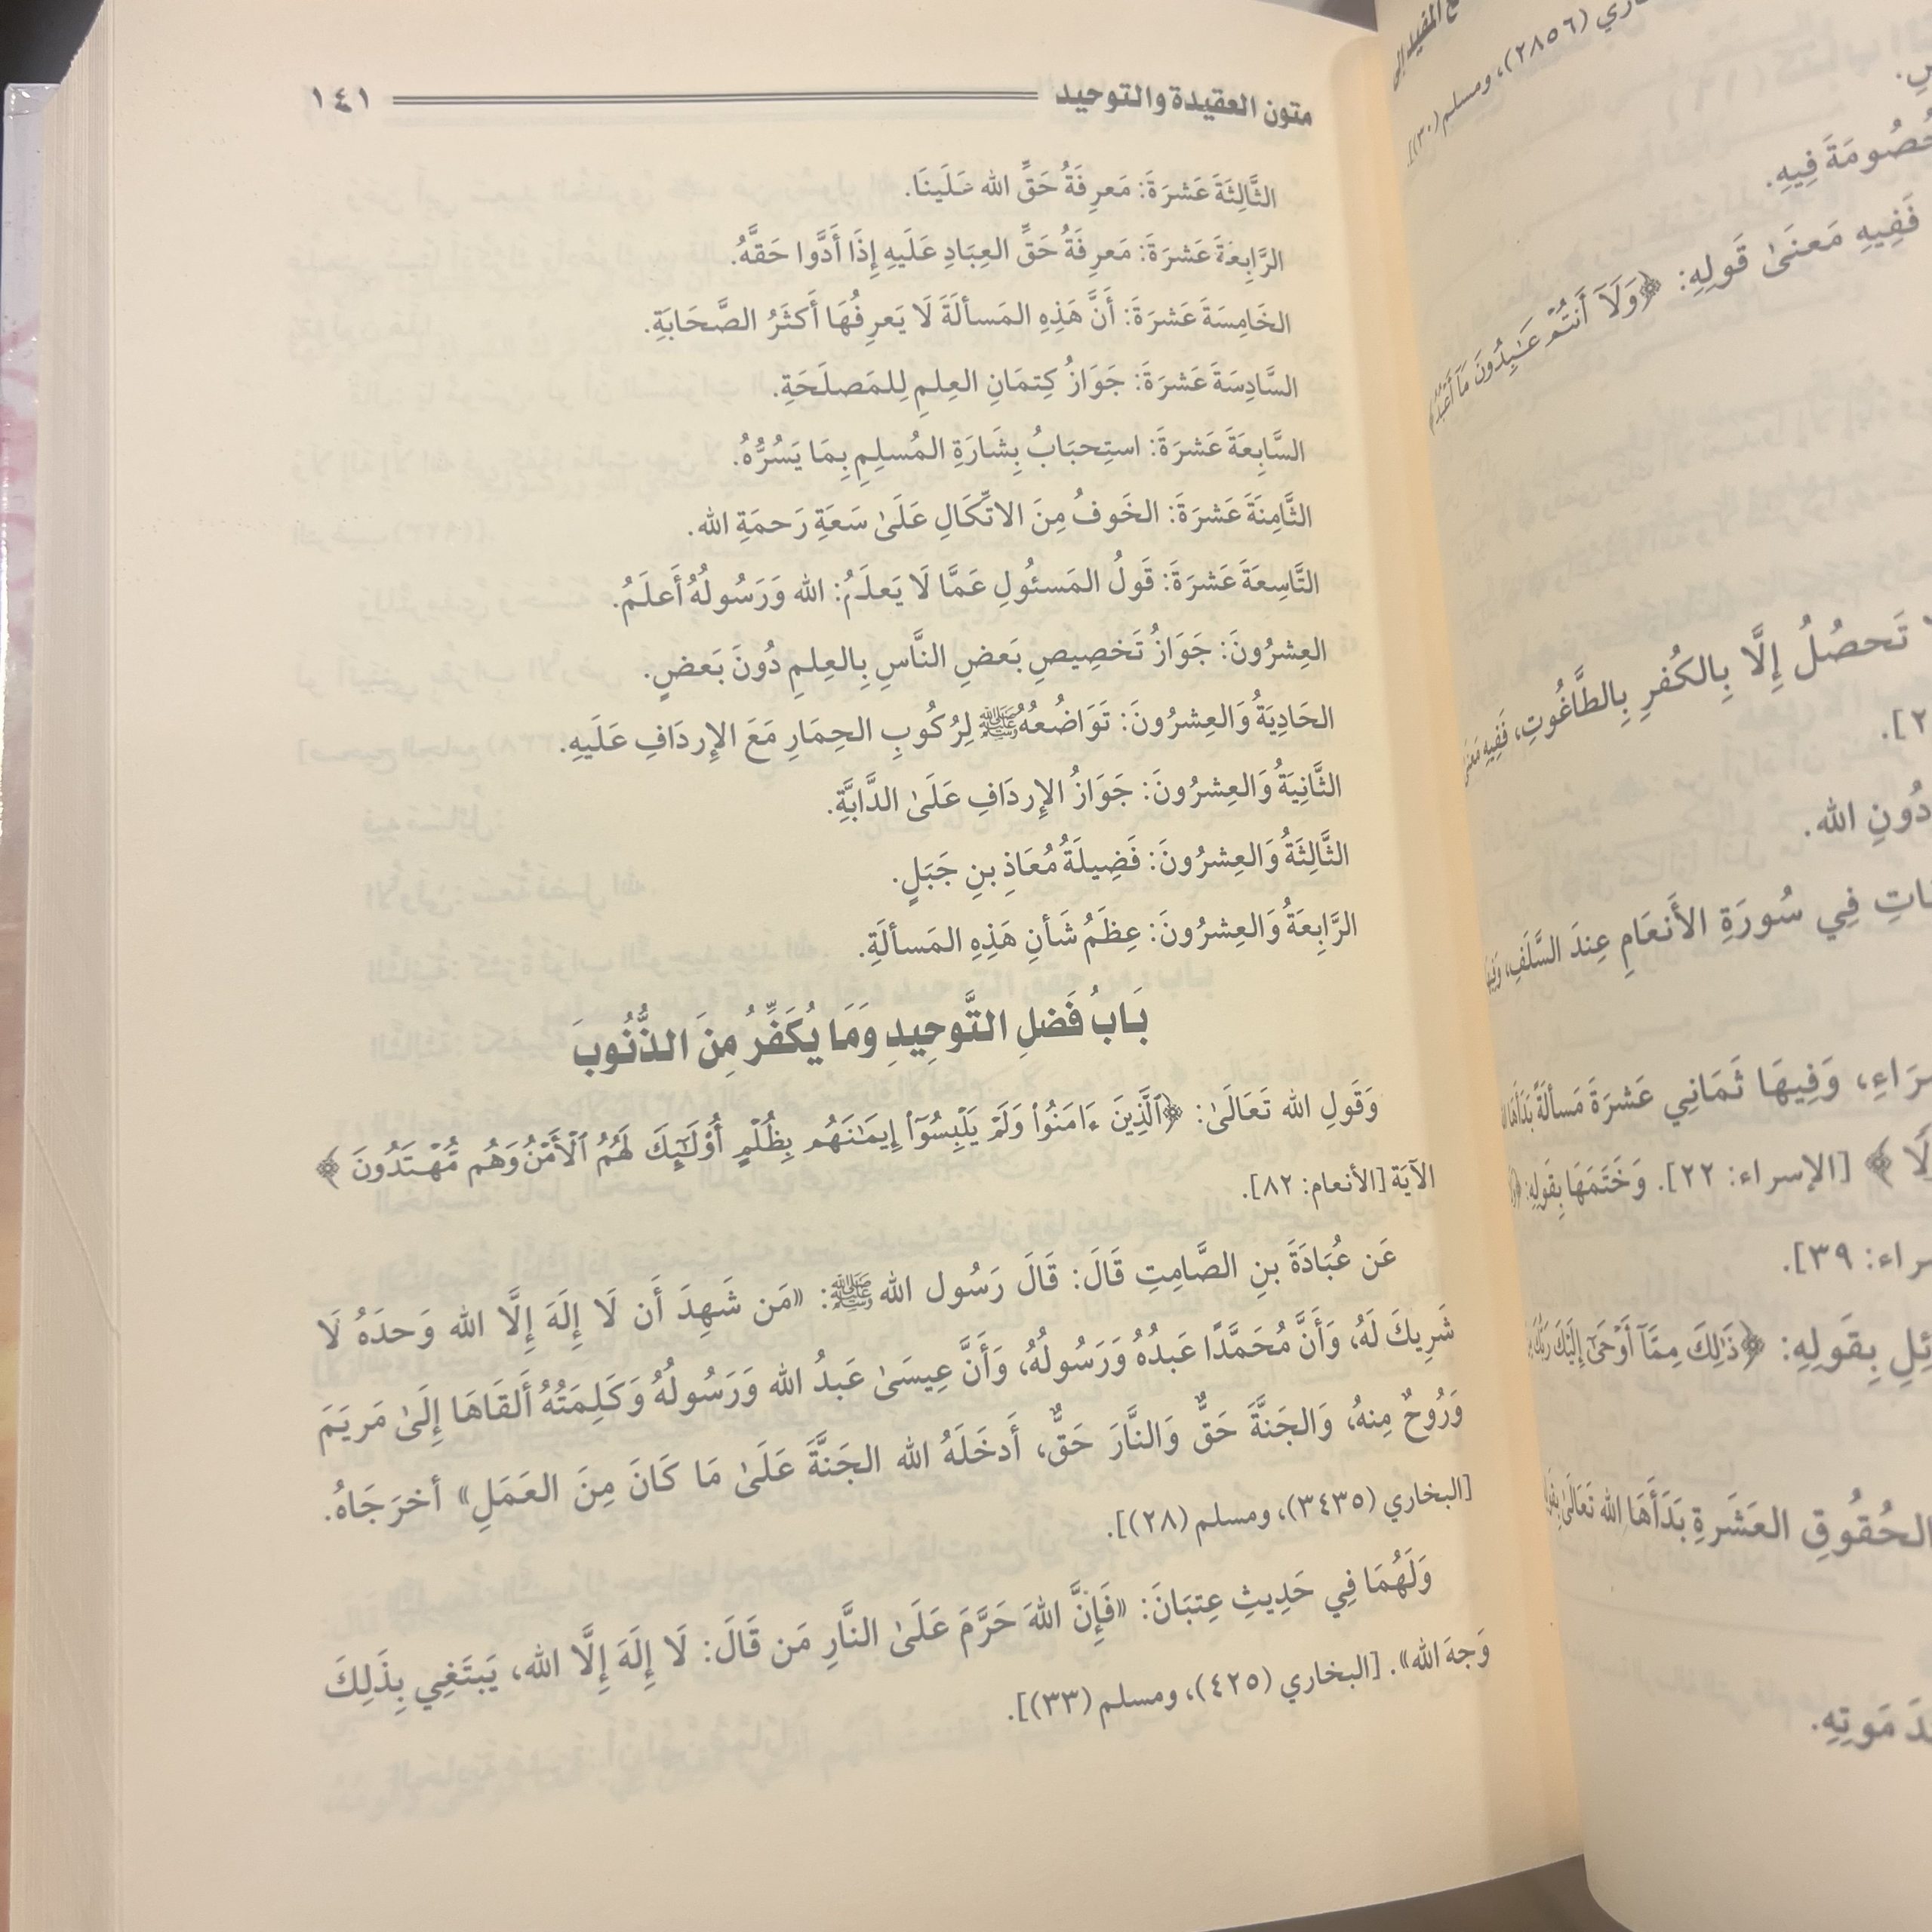 ـاري (٢٨٥٦)، ومسلم (٣٠)].
خُصُومَةَ فِيهِ.
فَفِيهِ مَعنَىٰ قَولِهِ: ﴿وَلَآ أَنتُمْ عَٰبِدُونَ مَآ أَعْبُدُ﴾
تَحصُلُ إِلَّا بِالكُفرِ بِالطَّاغُوتِ، فَفِيهِ
دُونِ الله.
فِي سُورَةِ الأَنعَامِ عِندَ السَّلَفِ،
وَفِيهَا ثَمَانِي عَشرَةَ مَسأَلَةً
[الإسراء: ٢٢]. وَخَتَمَهَا بِقَولِهِ:
ـراء: ٣٩].
بِقَولِهِ: ﴿ذَٰلِكَ مِمَّآ أَوْحَىٰٓ إِلَيْكَ رَبُّكَ
الحُقُوقِ العَشَرَةِ بَدَأَهَا الله تَعَالَىٰ
مَوتِهِ.
متون العقيدة والتوحيد ١٤١
الثَّالِثَةَ عَشرَةَ: مَعرِفَةُ حَقِّ الله عَلَينَا.
الرَّابِعَةَ عَشرَةَ: مَعرِفَةُ حَقِّ العِبَادِ عَلَيهِ إِذَا أَدَّوا حَقَّهُ.
الخَامِسَةَ عَشرَةَ: أَنَّ هَذِهِ المَسألَةَ لَا يَعرِفُهَا أَكثَرُ الصَّحَابَةِ.
السَّادِسَةَ عَشرَةَ: جَوَازُ كِتمَانِ العِلمِ لِلمَصلَحَةِ.
السَّابِعَةَ عَشرَةَ: استِحبَابُ بِشَارَةِ المُسلِمِ بِمَا يَسُرُّهُ.
الثَّامِنَةَ عَشرَةَ: الخَوفُ مِنَ الاتِّكَالِ عَلَىٰ سَعَةِ رَحمَةِ الله.
التَّاسِعَةَ عَشرَةَ: قَولُ المَسئُولِ عَمَّا لَا يَعلَمُ: الله وَرَسُولُهُ أَعلَمُ.
العِشرُونَ: جَوَازُ تَخصِيصِ بَعضِ النَّاسِ بِالعِلمِ دُونَ بَعضٍ.
الحَادِيَةُ وَالعِشرُونَ: تَوَاضُعُهُ ﷺ لِرُكُوبِ الحِمَارِ مَعَ الإِردَافِ عَلَيهِ.
الثَّانِيَةُ وَالعِشرُونَ: جَوَازُ الإِردَافِ عَلَىٰ الدَّابَّةِ.
الثَّالِثَةُ وَالعِشرُونَ: فَضِيلَةُ مُعَاذِ بنِ جَبَلٍ.
الرَّابِعَةُ وَالعِشرُونَ: عِظَمُ شَأنِ هَذِهِ المَسألَةِ.
بَابُ فَضلِ التَّوحِيدِ وَمَا يُكَفِّرُ مِنَ الذُّنُوبَ
وَقَولِ الله تَعَالَىٰ: ﴿ٱلَّذِينَ ءَامَنُوا۟ وَلَمْ يَلْبِسُوٓا۟ إِيمَٰنَهُم بِظُلْمٍ أُو۟لَٰٓئِكَ لَهُمُ ٱلْأَمْنُ وَهُم مُّهْتَدُونَ﴾
الآيَة [الأنعام: ٨٢].
عَن عُبَادَةَ بنِ الصَّامِتِ قَالَ: قَالَ رَسُول الله ﷺ: «مَن شَهِدَ أَن لَا إِلَهَ إِلَّا الله وَحدَهُ لَا
شَرِيكَ لَهُ، وَأَنَّ مُحَمَّدًا عَبدُهُ وَرَسُولُهُ، وَأَنَّ عِيسَىٰ عَبدُ الله وَرَسُولُهُ وَكَلِمَتُهُ أَلقَاهَا إِلَىٰ مَريَمَ
وَرُوحٌ مِنهُ، وَالجَنَّةَ حَقٌّ وَالنَّارَ حَقٌّ، أَدخَلَهُ الله الجَنَّةَ عَلَىٰ مَا كَانَ مِنَ العَمَلِ» أخرَجَاهُ.
[البخاري (٣٤٣٥)، ومسلم (٢٨)].
وَلَهُمَا فِي حَدِيثِ عِتبَانَ: «فَإِنَّ اللهَ حَرَّمَ عَلَىٰ النَّارِ مَن قَالَ: لَا إِلَهَ إِلَّا الله، يَبتَغِي بِذَلِكَ
وَجهَ الله». [البخاري (٤٢٥)، ومسلم (٣٣)].